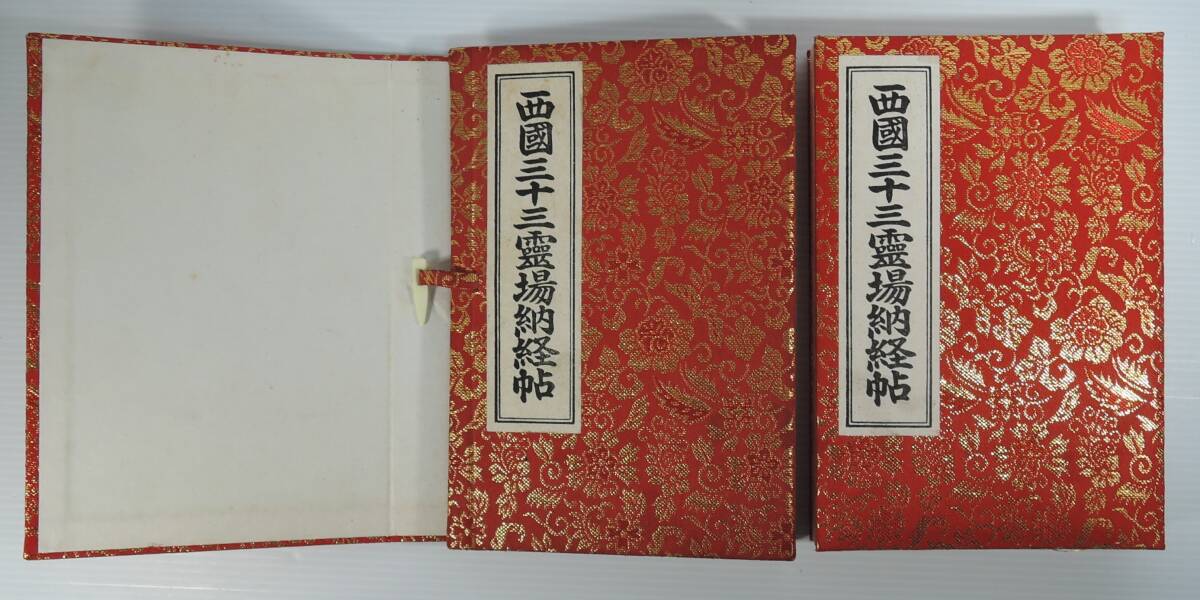 西國三十三靈場納経帖
西國三十三靈場納経帖